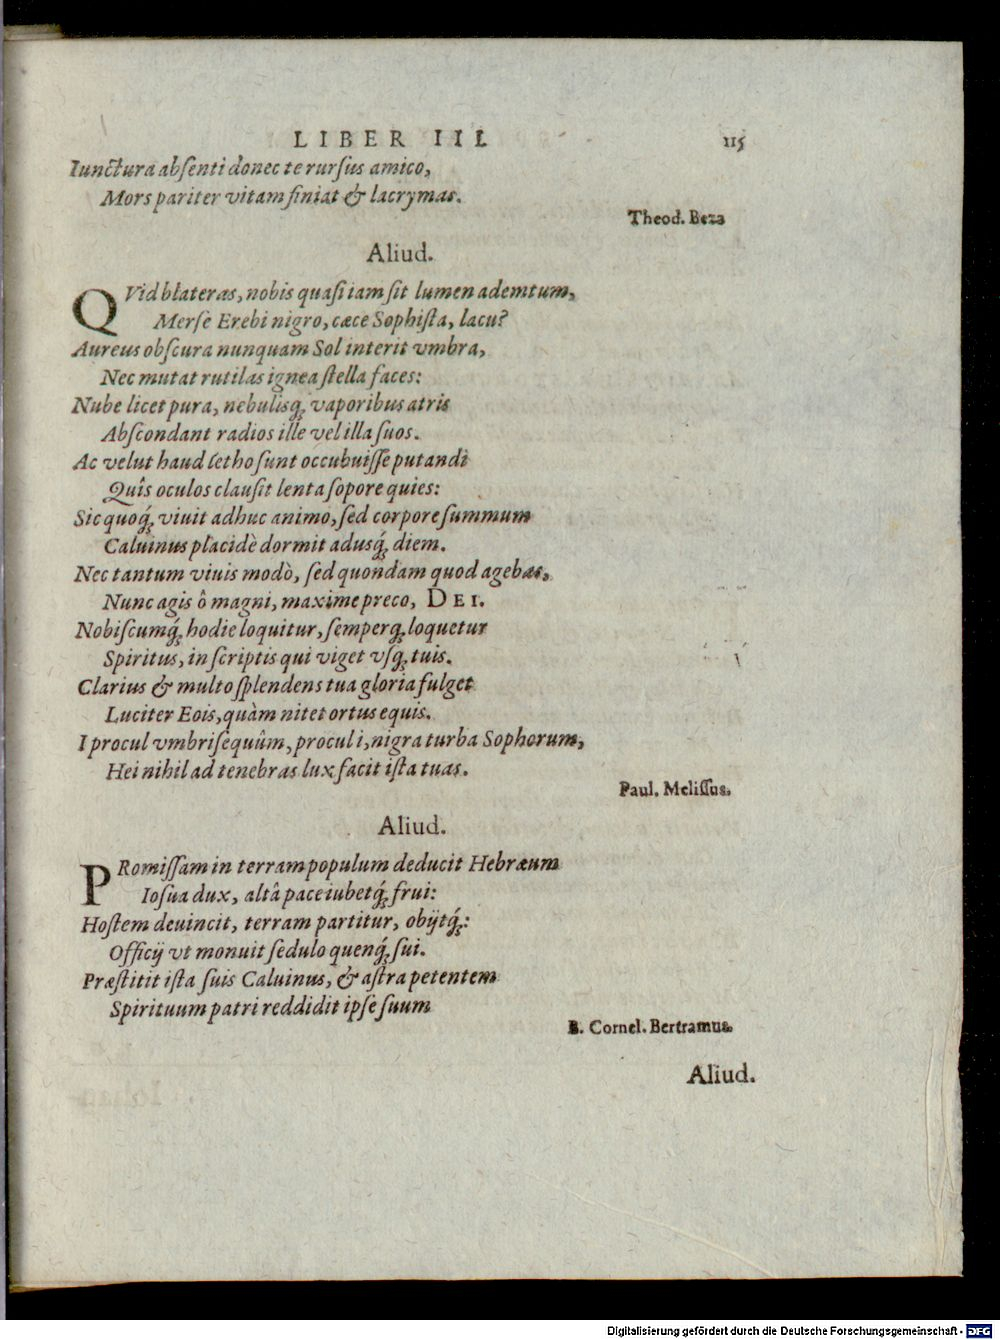 LIBER III.
115
Iunctura absenti donec te rursus amico,
Mors pariter vitam finiat & lacrymas.
Theod. Beza
Aliud.
QVid blateras, nobis quasi iam sit lumen ademtum,
Merse Erebi nigro, cæce Sophista, lacu?
Aureus obscura nunquam Sol interit vmbra,
Nec mutat rutilas ignea stella faces:
Nube licet pura, nebulisq́; vaporibus atris
Abscondant radios ille vel illa suos.
Ac velut haud letho sunt occubuisse putandi
Quîs oculos clausit lenta sopore quies:
Sic quoq́; viuit adhuc animo, sed corpore summum
Caluinus placidè dormit adusq́; diem.
Nec tantum viuis modò, sed quondam quod agebas,
Nunc agis ô magni, maxime preco, DEI.
Nobiscumq́; hodie loquitur, semperq́; loquetur
Spiritus, in scriptis qui viget vsq́; tuis.
Clarius & multo splendens tua gloria fulget
Luciter Eois, quàm nitet ortus equis.
I procul vmbrisequûm, procul i, nigra turba Sophorum,
Hei nihil ad tenebras lux facit ista tuas.
Paul. Melissus.
Aliud.
PRomissam in terram populum deducit Hebræum
Iosua dux, altâ pace iubetq́; frui:
Hostem deuincit, terram partitur, obijtq́;:
Officij vt monuit sedulo quenq́; sui.
Præstitit ista suis Caluinus, & astra petentem
Spirituum patri reddidit ipse suum
B. Cornel. Bertramus.
Aliud.
Digitalisierung gefördert durch die Deutsche Forschungsgemeinschaft - DFG